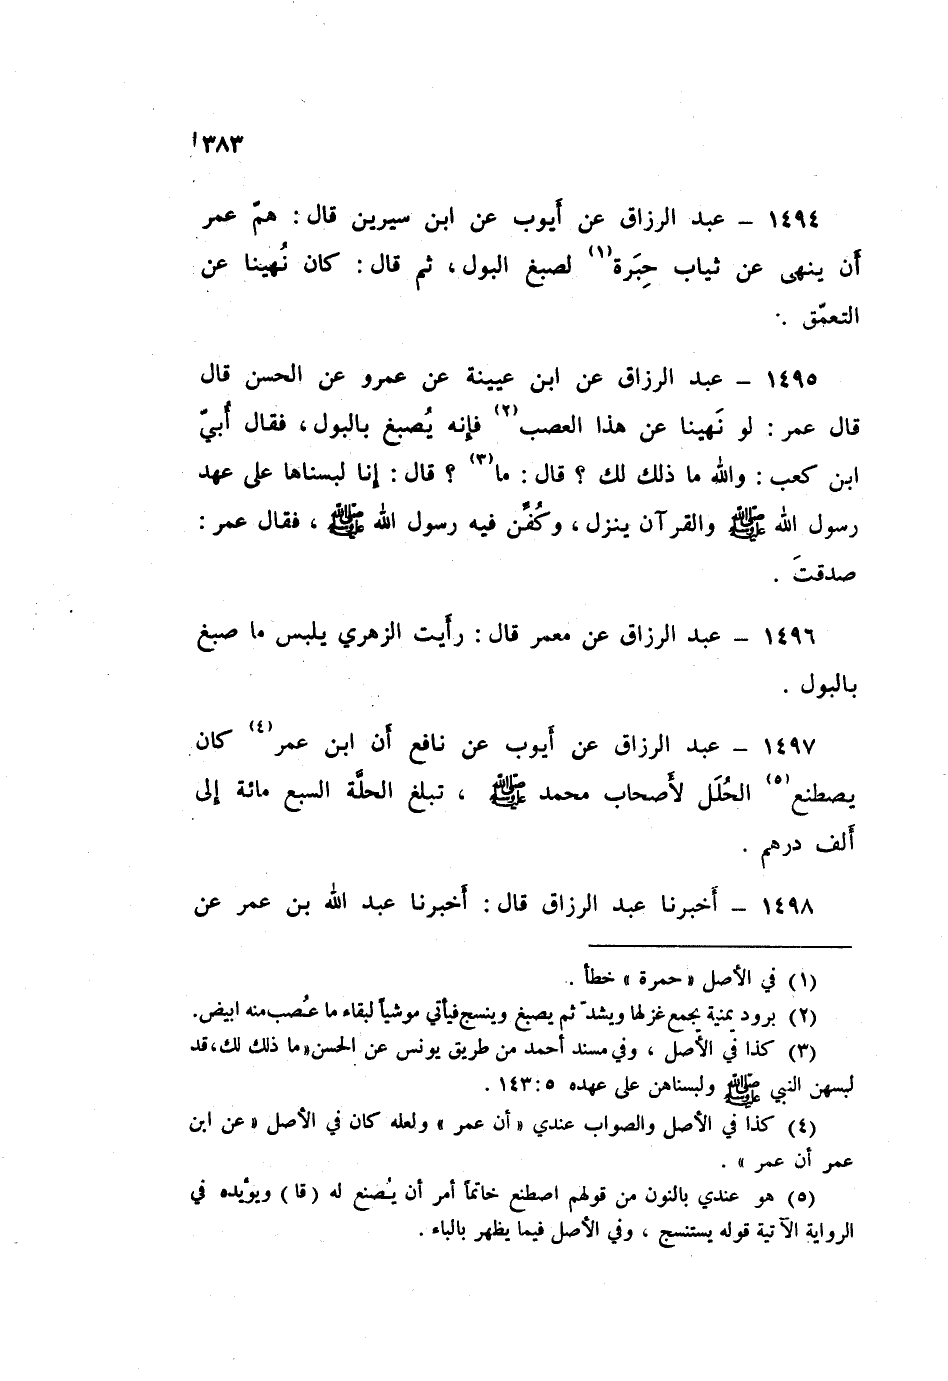 ٣٨٣
١٤٩٤ – عبد الرزاق عن أَيوب عن ابن سيرين قال : همّ عمر
أَن ينهى عن ثياب حِبَرَة(١) لصبغ البول ، ثم قال : كان نُهينا عن
التعمّق .
١٤٩٥ – عبد الرزاق عن ابن عيينة عن عمرو عن الحسن قال
قال عمر : لو نَهينا عن هذا العصب(٢) فإنه يُصبغ بالبول ، فقال أُبيّ
ابن كعب : والله ما ذلك لك ؟ قال : ما(٣) ؟ قال : إنا لبسناها على عهد
رسول الله ﷺ والقرآن ينزل ، وكُفِّن فيه رسول الله ﷺ ، فقال عمر :
صدقتَ .
١٤٩٦ – عبد الرزاق عن معمر قال : رأَيت الزهري يلبس ما صبغ
بالبول .
١٤٩٧ – عبد الرزاق عن أَيوب عن نافع أَن ابن عمر(٤) كان
يصطنع(٥) الحُلَل لأَصحاب محمد ﷺ ، تبلغ الحلَّة السبع مائة إلى
أَلف درهم .
١٤٩٨ – أَخبرنا عبد الرزاق قال : أَخبرنا عبد الله بن عمر عن
(١) في الأصل «حمرة» خطأ .
(٢) برود يمنية يجمع غزلها ويشدّ ثم يصبغ وينسج فيأتي موشياً لبقاء ما عُصب منه ابيض.
(٣) كذا في الأصل ، وفي مسند أحمد من طريق يونس عن الحسن «ما ذلك لك، قد
لبسهن النبي ﷺ ولبسناهن على عهده ٥ : ١٤٣ .
(٤) كذا في الأصل والصواب عندي «أن عمر» ولعله كان في الأصل «عن ابن
عمر أن عمر» .
(٥) هو عندي بالنون من قولهم اصطنع خاتماً أمر أن يُصنع له (قا) ويؤيده في
الرواية الآتية قوله يستنسج ، وفي الأصل فيما يظهر بالباء .